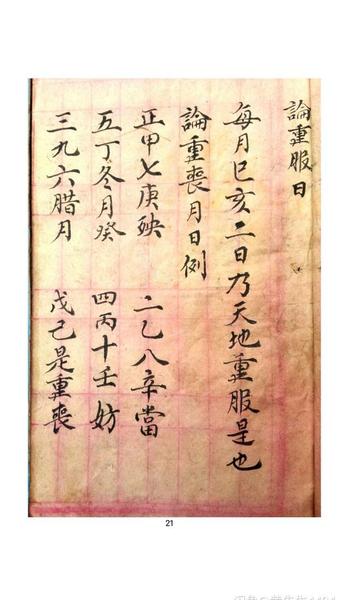 論重服日
每月巳亥二日乃天地重服是也
論重喪月日例
正甲七庚殃 二乙八辛當
五丁冬月癸 四丙十壬妨
三九六腊月 戊己是重喪
21